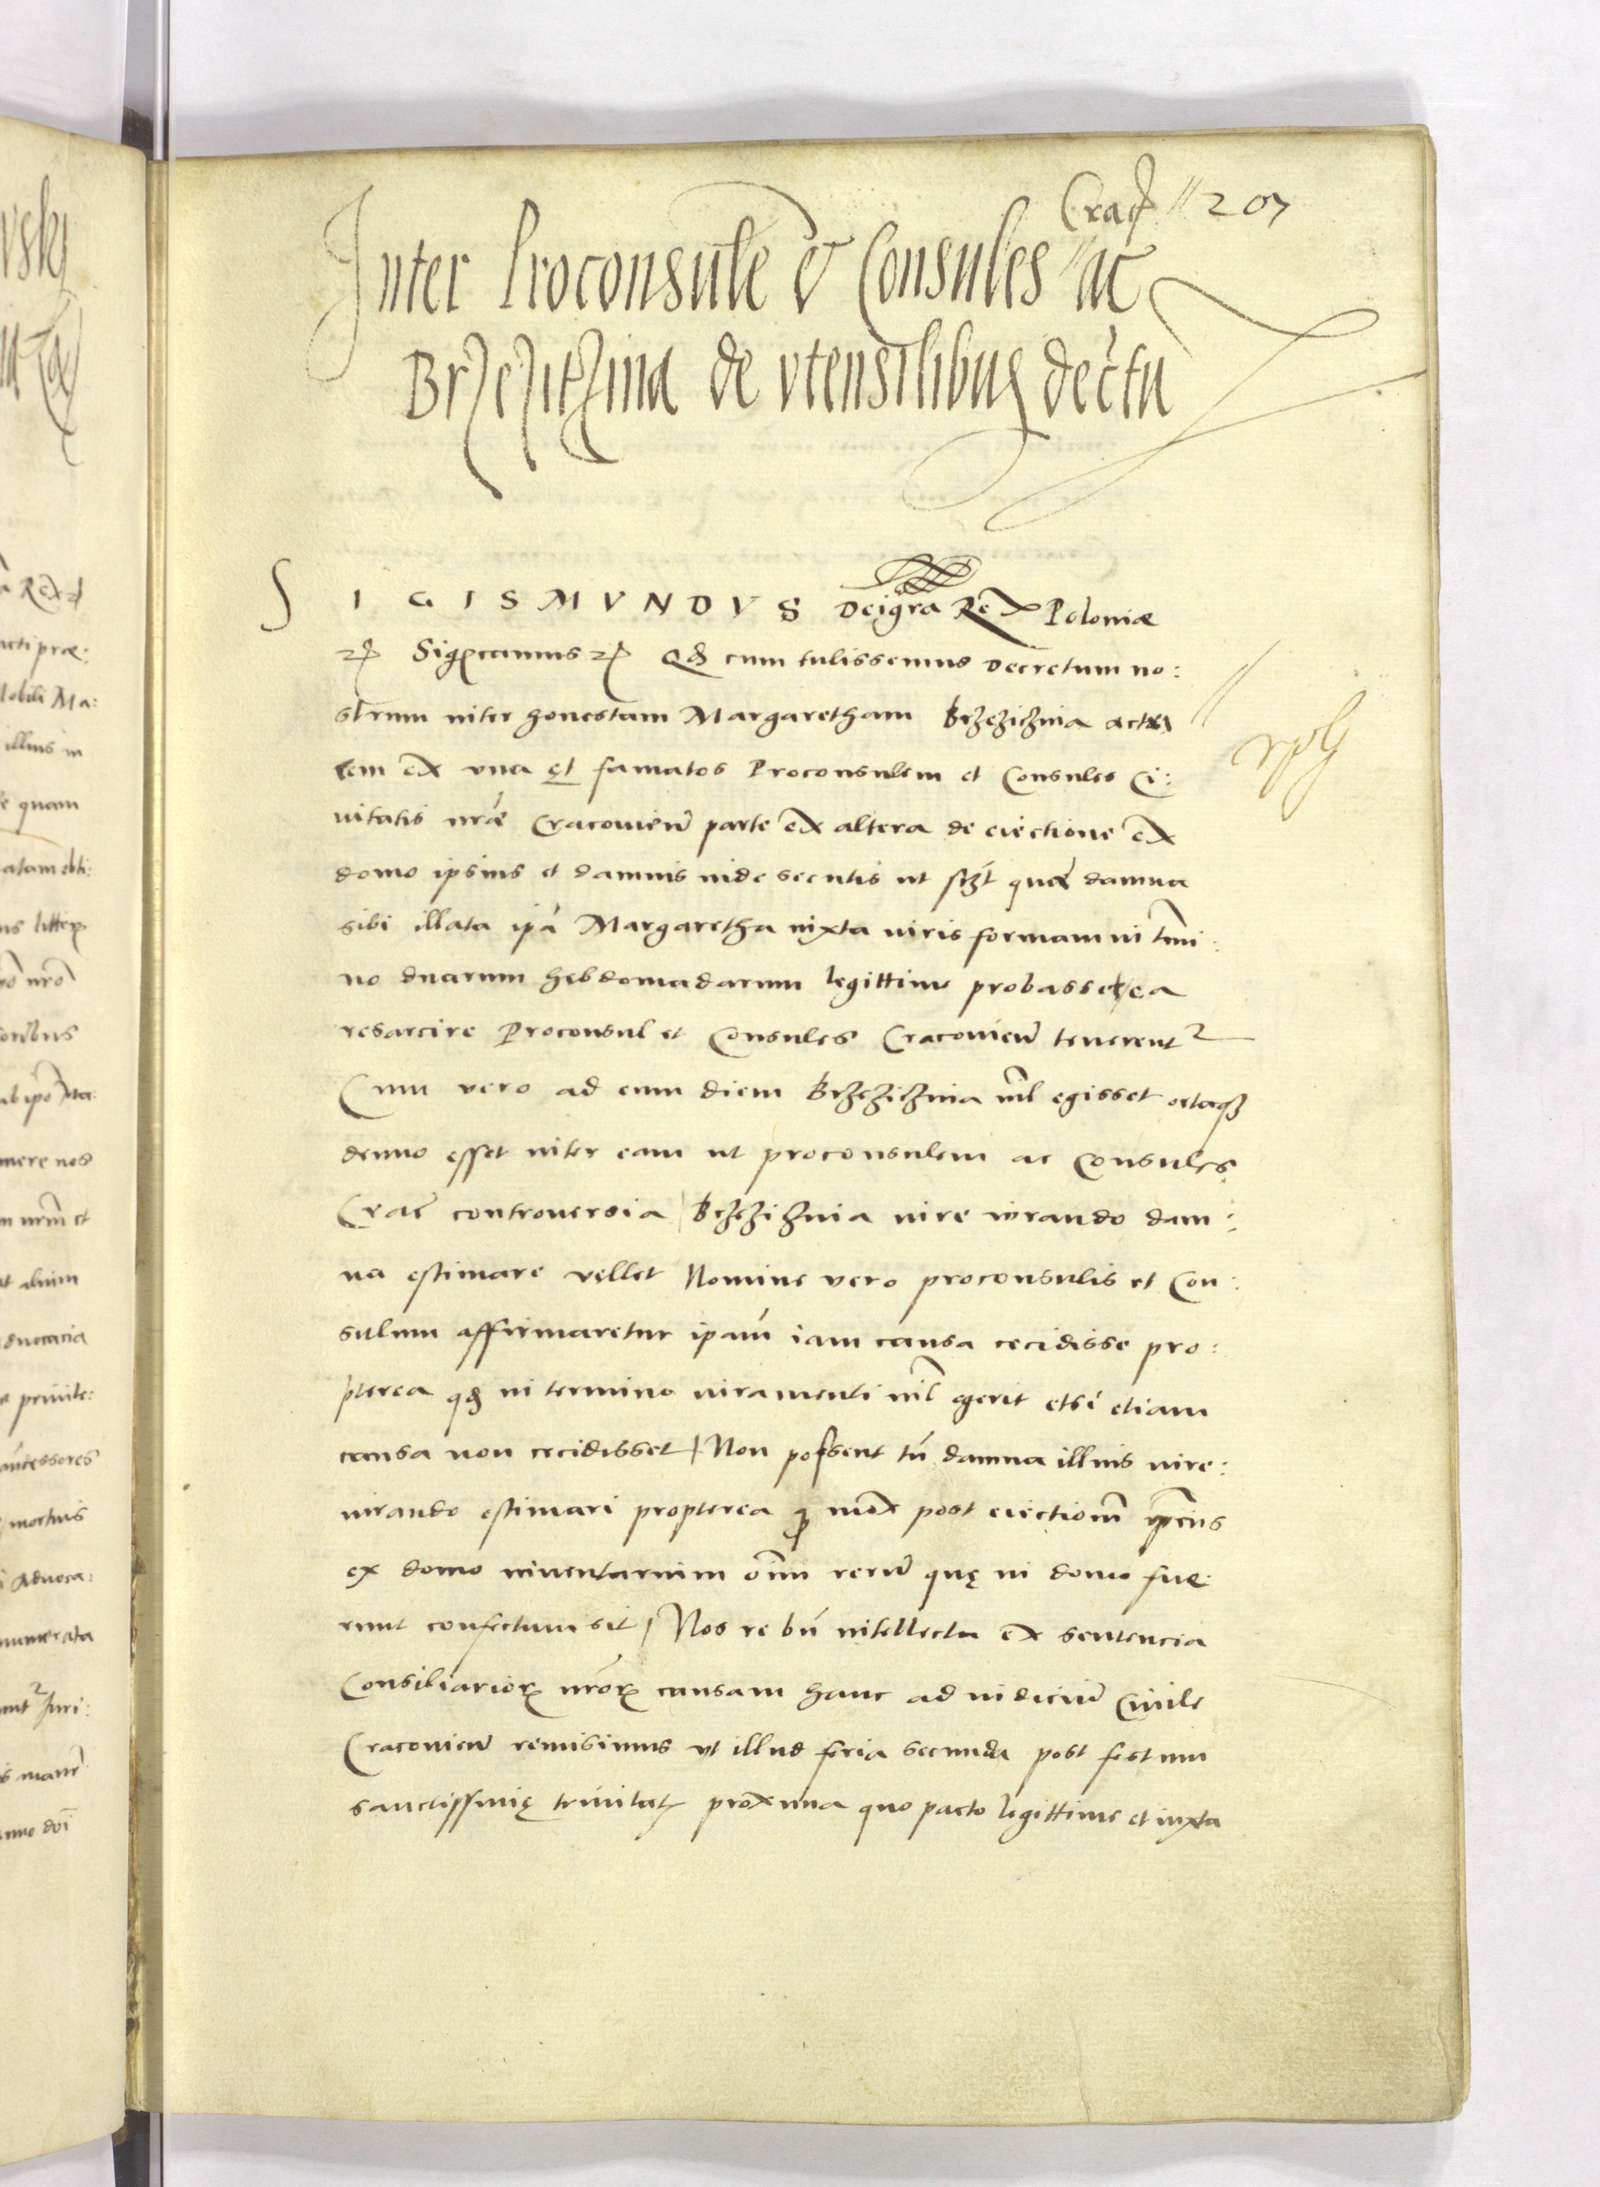 Crac͡ // 207
Inter Proconsulē et Consules // ac
Brzezitzina de vtensilibus decr̄tū
SIGISMVNDVS Dei gr̄a Rex Poloniæ
Sig: cum tulissemus Decretum no:
strum inter honestam Margaretham Brzezichnia acto
rem ex vna et famatos Proconsulem et Consules Ci:
uitatis nr̄æ Cracovień parte ex altera de eiectione ex
domo ipsius et damnis inde secutis ut quæ damna
sibi illata ip̄a Margaretha iuxta iuris formam in tm̄i:
no duarum hebdomadarum legittime probasset ea
resarcire Proconsul et Consules Cracovień tenerent̉
Cum vero ad eum diem Brzezichnia nil egisset ortaq̄
denuo esset inter eam ut proconsulem ac Consules
Crac̄ controuersia / Brzezichnia iure iurando dam:
na estimare vellet Nomine vero proconsulis et Con:
sulum affirmaretur ipam̄ iam causa cecidisse pro:
pterea qđ in termino iuramenti nil egerit etsi etiam
causa non cecidisset / Non possent tn̄ damna illius iure:
iurando estimari propterea q mox post eiectionē ipsius
ex domo inuentarium om̄m rerū quę in domo fue
runt confectum sit / Nos re bn̄ intellecta ex sentencia
Consiliarior nr̄or causam hanc ad iudiciū Ciuile
Cracovień remisimus vt illud feria secunda post festum
sanctissimę trinitat proxima quo pacto legittime et iuxta